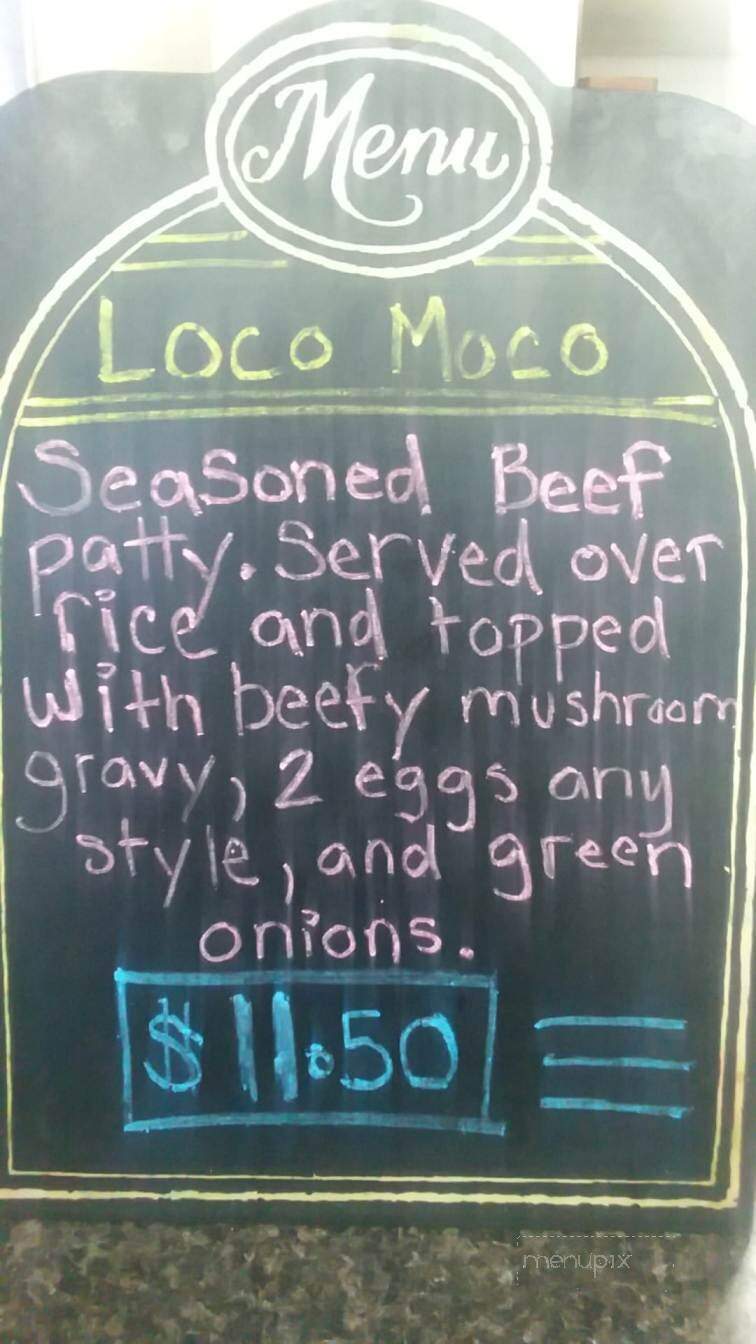 Menu
Loco Moco
Seasoned Beef
patty. Served over
rice and topped
with beefy mushroom
gravy, 2 eggs any
style, and green
onions.
$11.50
menupix